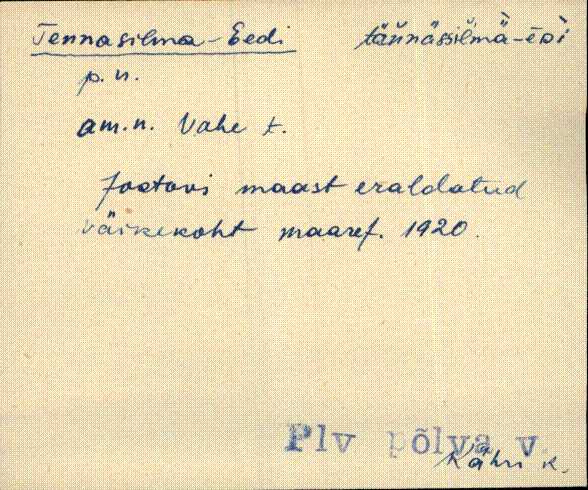 Tennasilma-Eedi tännässilmä-eDi
p. n.
am. n. Vahe t.
Jootovi maast eraldatud
väikekoht maaref. 1920.
Plv põlva v.
Kähri k.